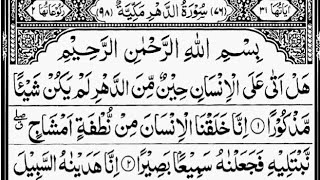 اٰیَاتُهَا ٣١ (٧٦) سُوْرَةُ الدَّهْرِ مَکِّیَّةٌ (٩٨) رُکُوْعَاتُهَا ٢
بِسْمِ اللهِ الرَّحْمٰنِ الرَّحِيْمِ
هَلْ اَتٰى عَلَى الْاِنْسَانِ حِيْنٌ مِّنَ الدَّهْرِ لَمْ يَكُنْ شَيْئًا
مَّذْكُوْرًا ۝١ اِنَّا خَلَقْنَا الْاِنْسَانَ مِنْ نُّطْفَةٍ اَمْشَاجٍ ۖ
نَّبْتَلِيْهِ فَجَعَلْنٰهُ سَمِيْعًا بَصِيْرًا ۝٢ اِنَّا هَدَيْنٰهُ السَّبِيْلَ